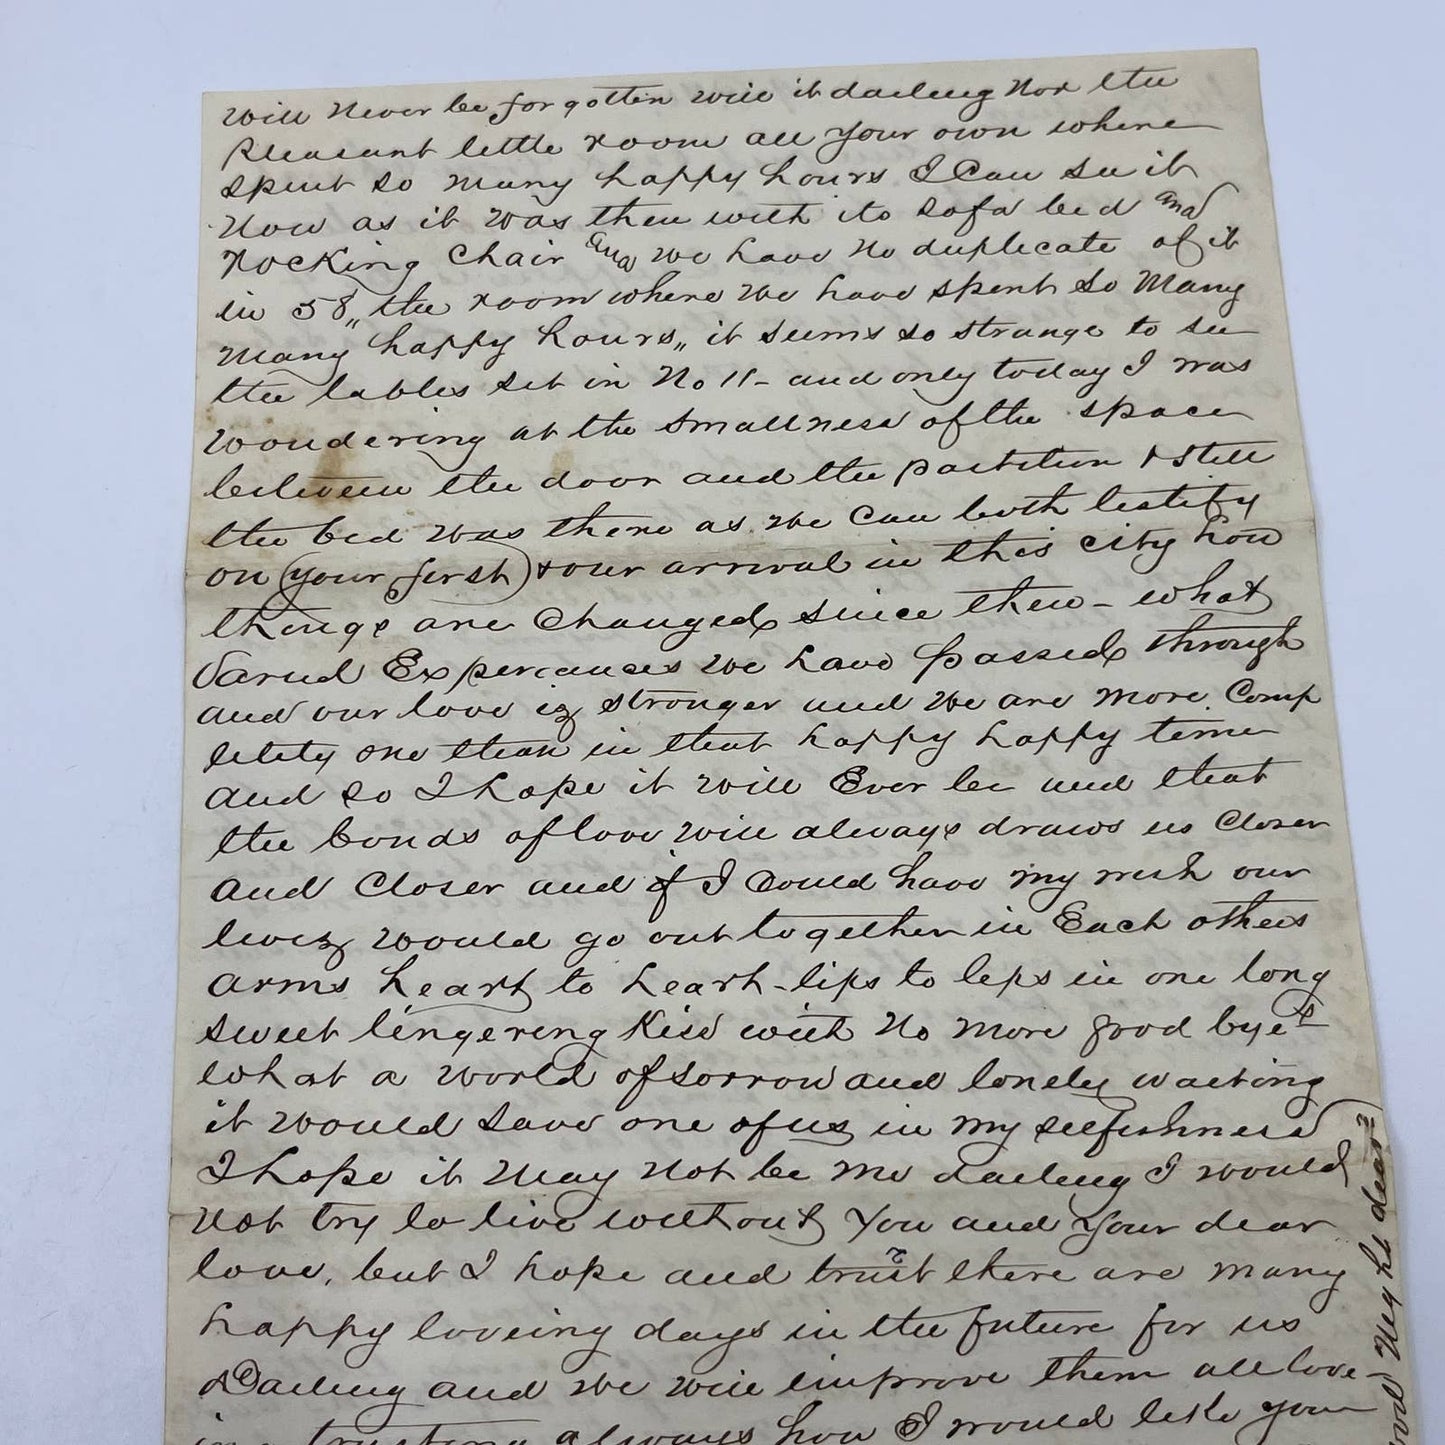 will never be forgotten will it darling Nor the
Pleasant little room all your own where
spent so many happy hours I Can see it
Now as it was then with its Sofa bed and
Rocking Chair and we have No duplicate of it
in 58,, the room where We have spent so Many
Many happy hours,, it seems so strange to see
the tables set in No 11 - and only today I was
wondering at the smallness of the space
between the door and the partition & still
the bed was there as we Can both testify
on (your first) & our arrival in this city how
things are Changed since then - what
Varied Experiances we have passed through
and our love is stronger and we are more Comp
letely one than in that happy happy time
and so I hope it will Ever be and that
the bonds of love will always draws us Closer
and Closer and if I Could have my wish our
lives would go out together in Each others
arms heart to heart - lips to lips in one long
sweet lingering Kiss with No more good byes
What a world of sorrow and lonely waiting
it would save one of us in my selfishness
I hope it May Not be Me darling I would
Not try to live without You and Your dear
love, but I hope and trust there are many
happy loveing days in the future for us
Darling and we will improve them all love-
ing trusting always how I would like your
Night dear